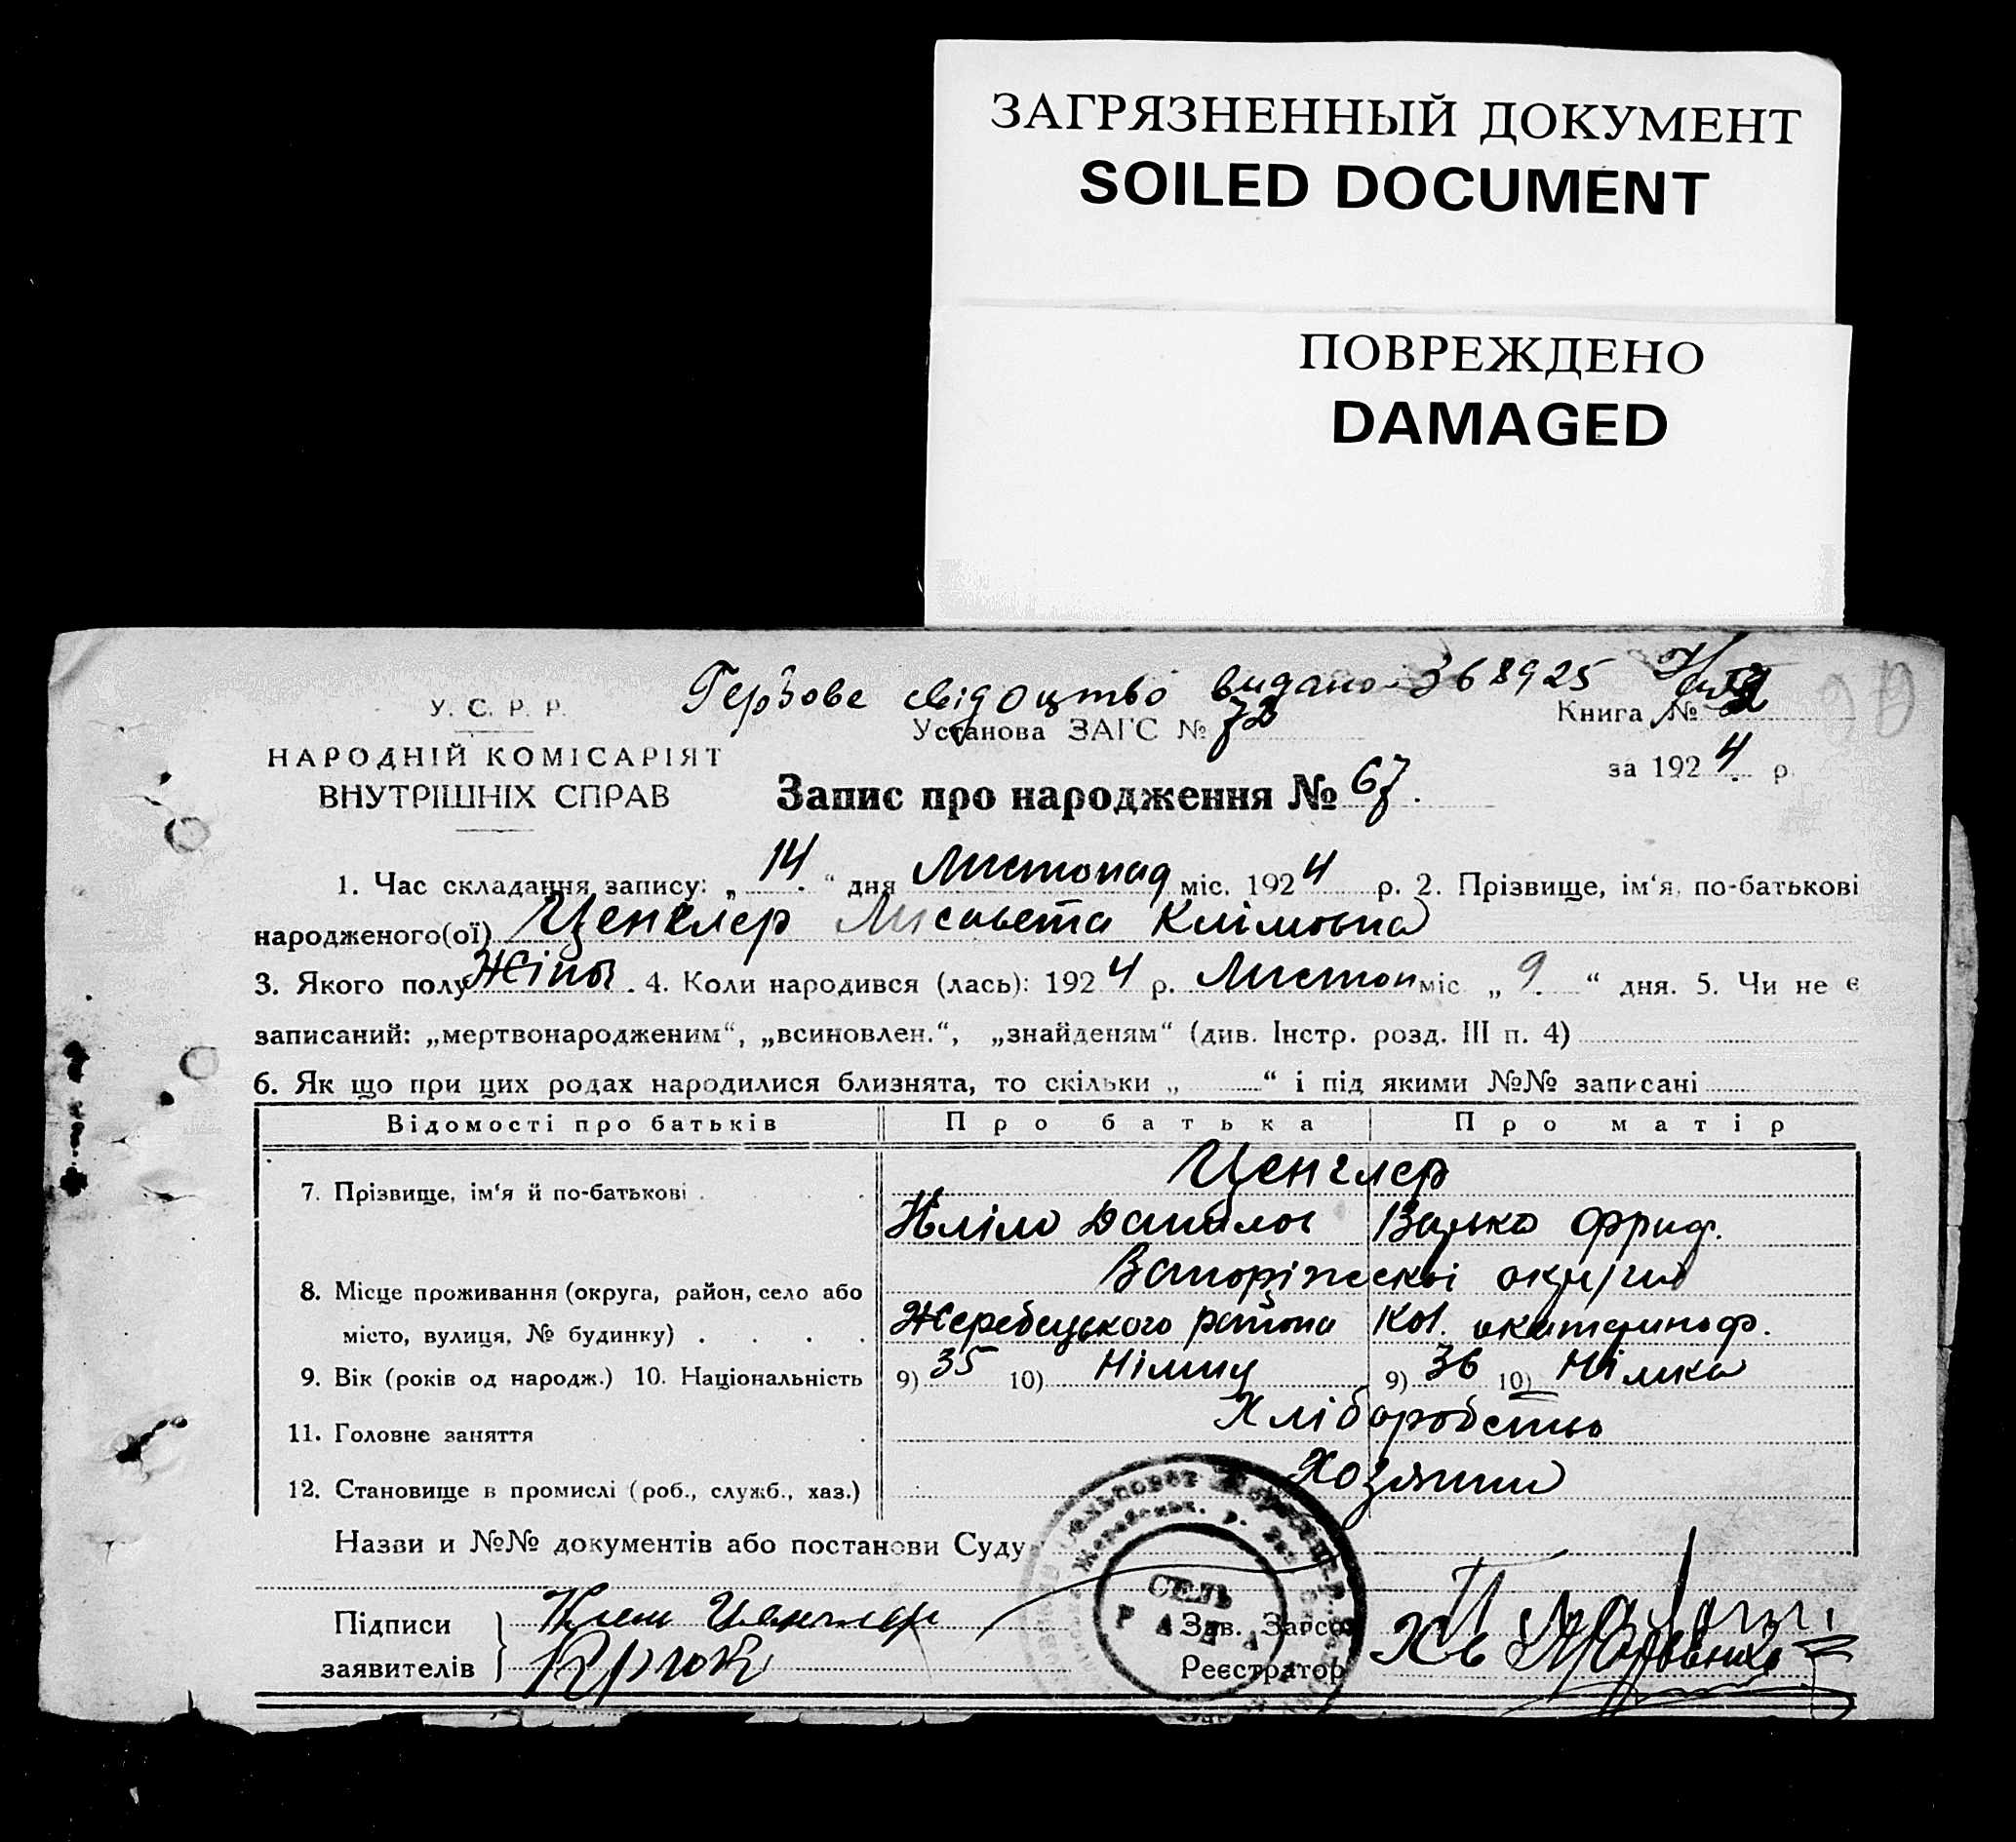 ЗАГРЯЗНЕННЫЙ ДОКУМЕНТ
SOILED DOCUMENT
ПОВРЕЖДЕНО
DAMAGED
Гербове свідоцтво видано 368925
У. С. Р. Р.
Установа ЗАГС № 72
Книга №
НАРОДНІЙ КОМІСАРІЯТ
ВНУТРІШНІХ СПРАВ
за 1924 р.
Запис про народження № 67.
1. Час складання запису: „14“ дня Листопад міс. 1924 р. 2. Прізвище, ім‘я, по-батькові
народженого(ої) Ценклер Лисавета Клімовна
3. Якого полу Жіноч. 4. Коли народився (лась): 1924 р. Листоп міс „9“ дня. 5. Чи не є
записаний: „мертвонародженим“, „всиновлен.“, „знайденям“ (див. Інстр. розд. III п. 4)
6. Як що при цих родах народилися близнята, то скільки „ “ і під якими №№ записані
Відомості про батьків Про батька Про матір
Ценглер
7. Прізвище, ім‘я й по-батькові
Данилов Фрид.
Запоріжськоі округи
8. Місце проживання (округа, район, село або
місто, вулиця, № будинку)
Жеребецького района Кол.
9. Вік (років од народж.) 10. Національність 9) 35 10) Німец 9) 36 10) Німка
Хліборобство
11. Головне заняття
Хозяини
12. Становище в промислі (роб., служб., хаз.)
Назви и №№ документів або постанови Суду
СЕЛЬ
РАДА
Підписи Клем
заявителів
Зав. Загсо
Реєстратор